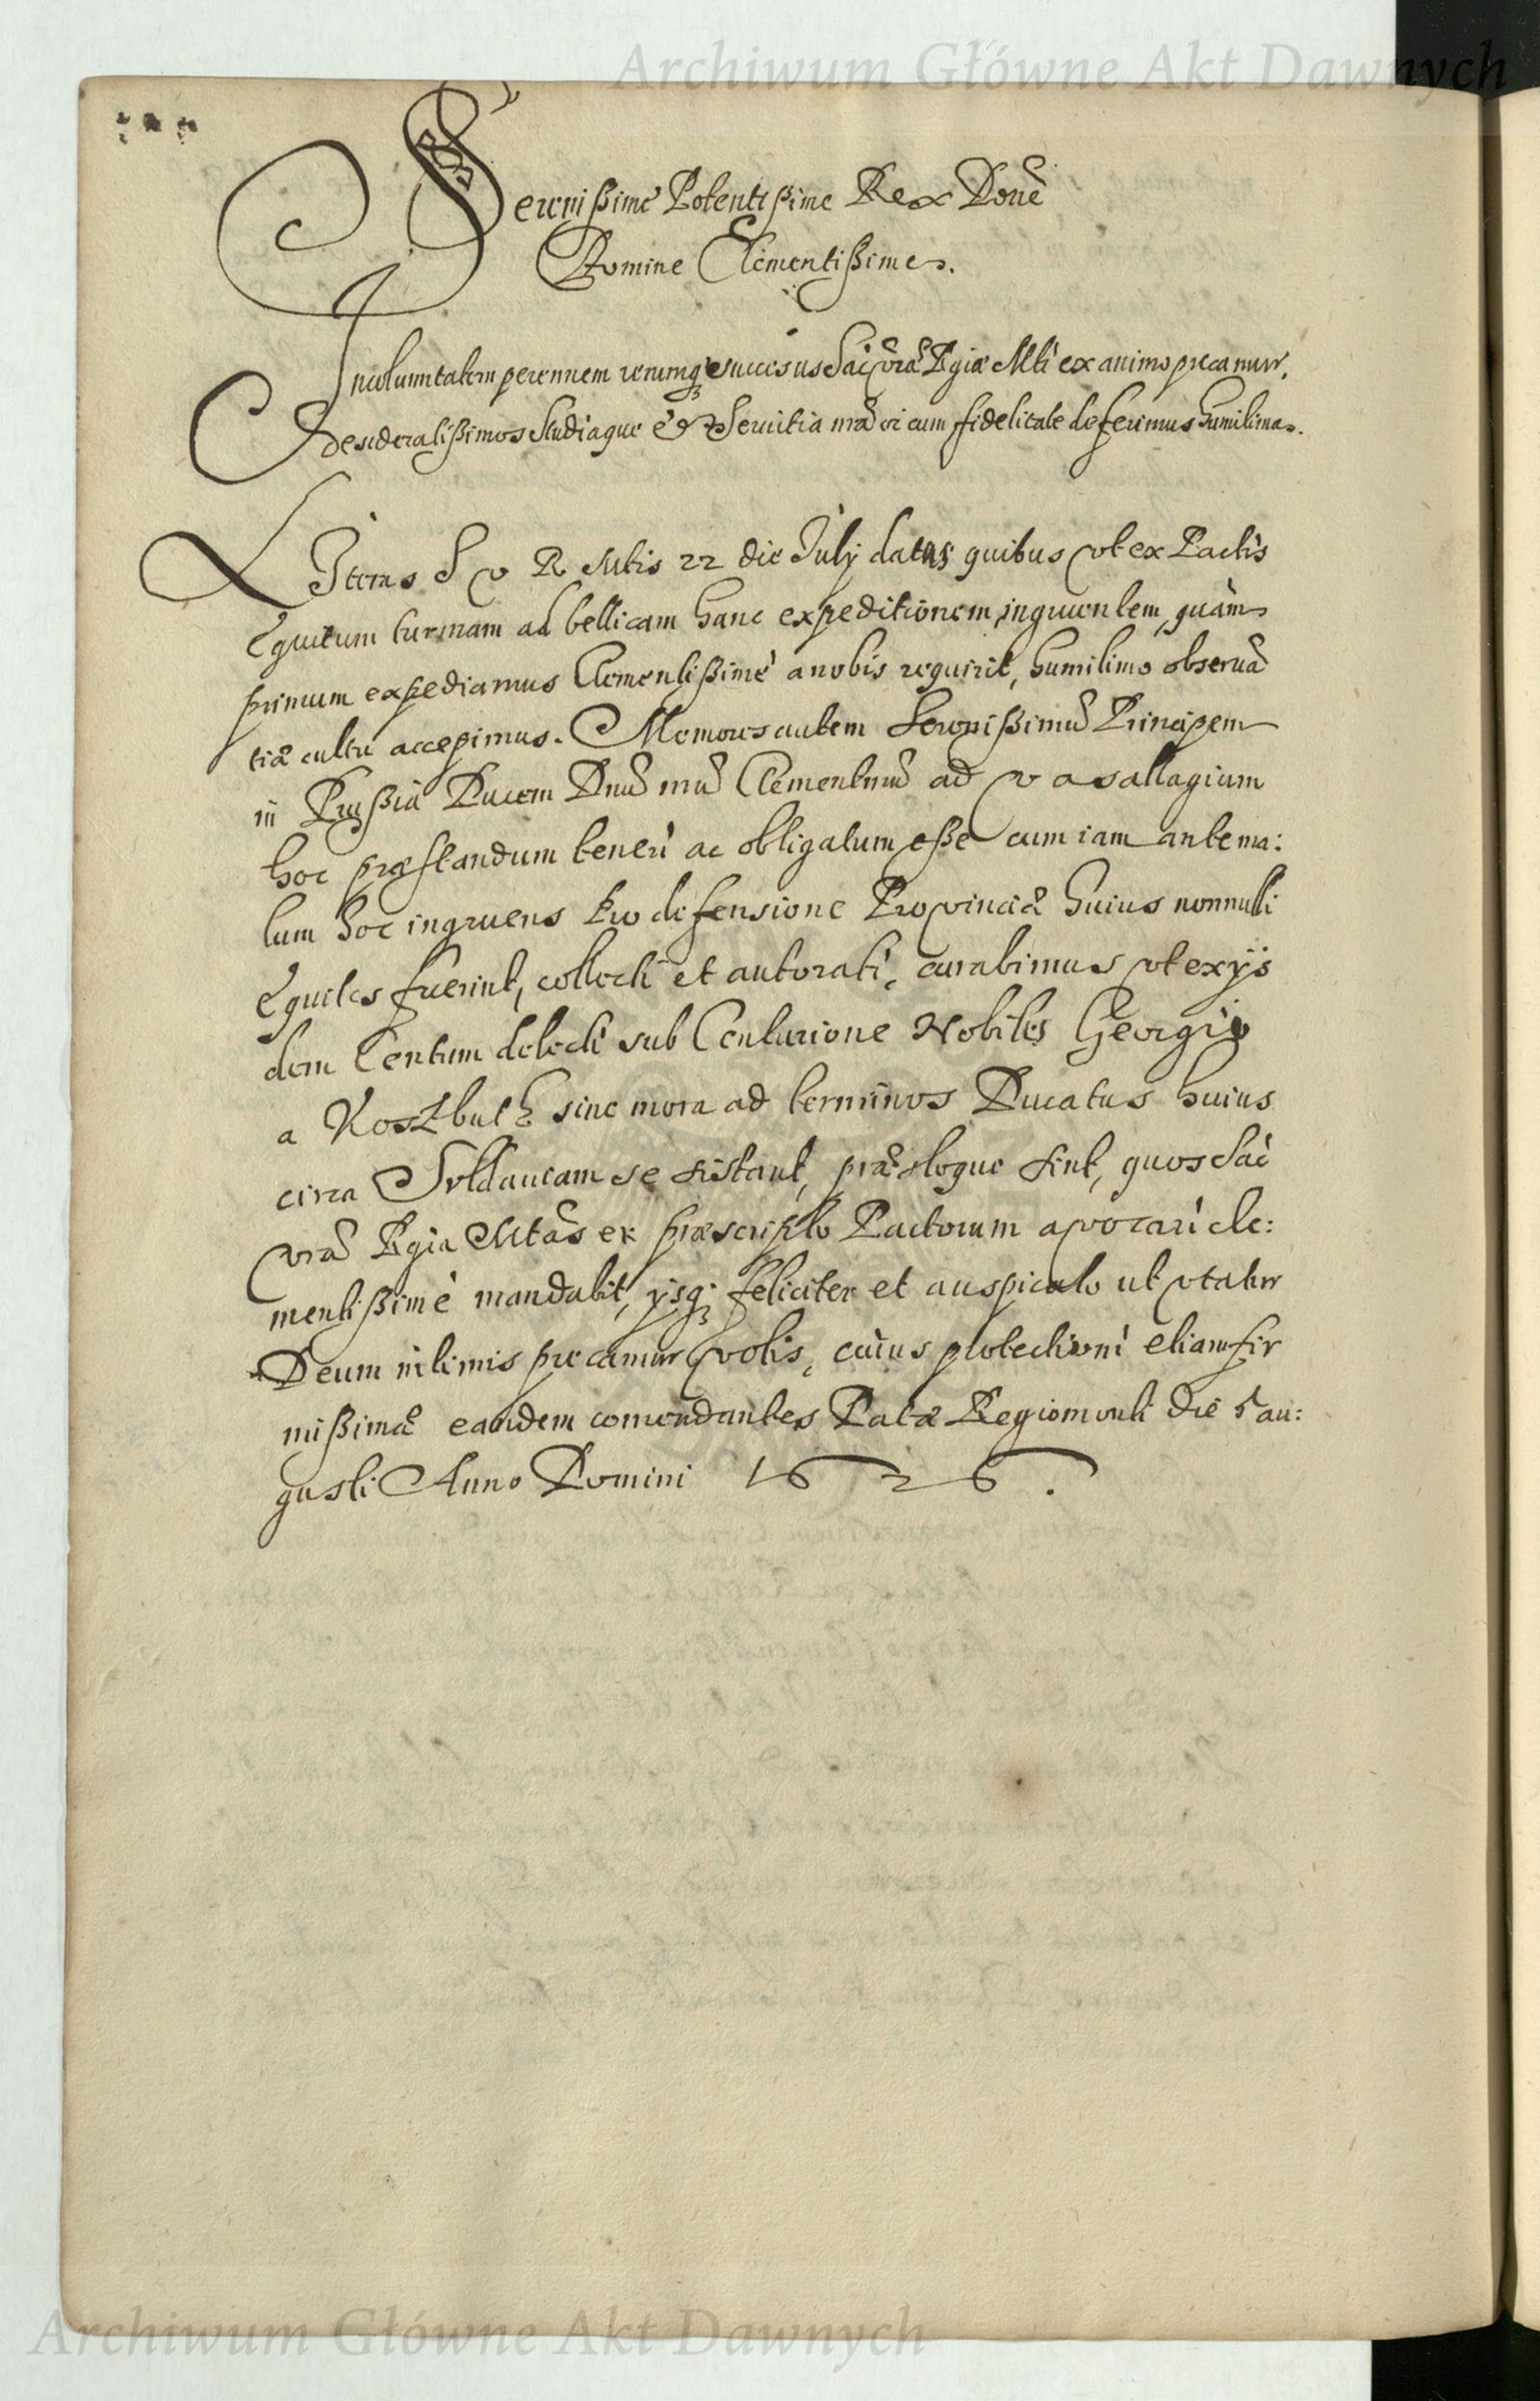 Archiwum Główne Akt Dawnych
Serenißime Potentißime Rex Domē
Domine Clementißime.
Incolumitatem perennem rerumq; successus Sac vrāe Rgiæ Mti ex animo precamur,
desideratißimos Studiaque et Servitia nrā cum fidelitate deferimus humilima.
Literas S v R Mtis 22 die July datas quibus vt ex Pactis
Equitum turmam ad bellicam hanc expeditionem ingruentem, quàm
primum expediamus Clementißimè a nobis requirit, humilimo observā
tiæ cultu accepimus. Memores autem Serenißimū Principem
in Prußia Ducem Dnū nrū Clementmū ad vasallagium
hoc præstandum teneri ac obligatum eße cum iam ante ma:
lum hoc ingruens pro defensione Provinciæ huius nonnulli
Equites fuerint, collecti et autorati, curabimus vt ex ijs
dem Centum delecti sub Centurione Nobiles Georgio
a Koszbuth sine mora ad terminos Ducatus huius
circa Soldauiam se sistant, præstoque sint, quos Sac
vrā Rgia Mtās ex præscripto Pactorum avocari cle:
mentißimè mandabit, ijsq; feliciter et auspicato ut vtatur
Deum intimis precamur votis, cuius protectioni etiam fir
mißimæ eandem comendantes Datæ Regiomonti die 5 au:
gusti Anno Domini 1626.
Archiwum Główne Akt Dawnych